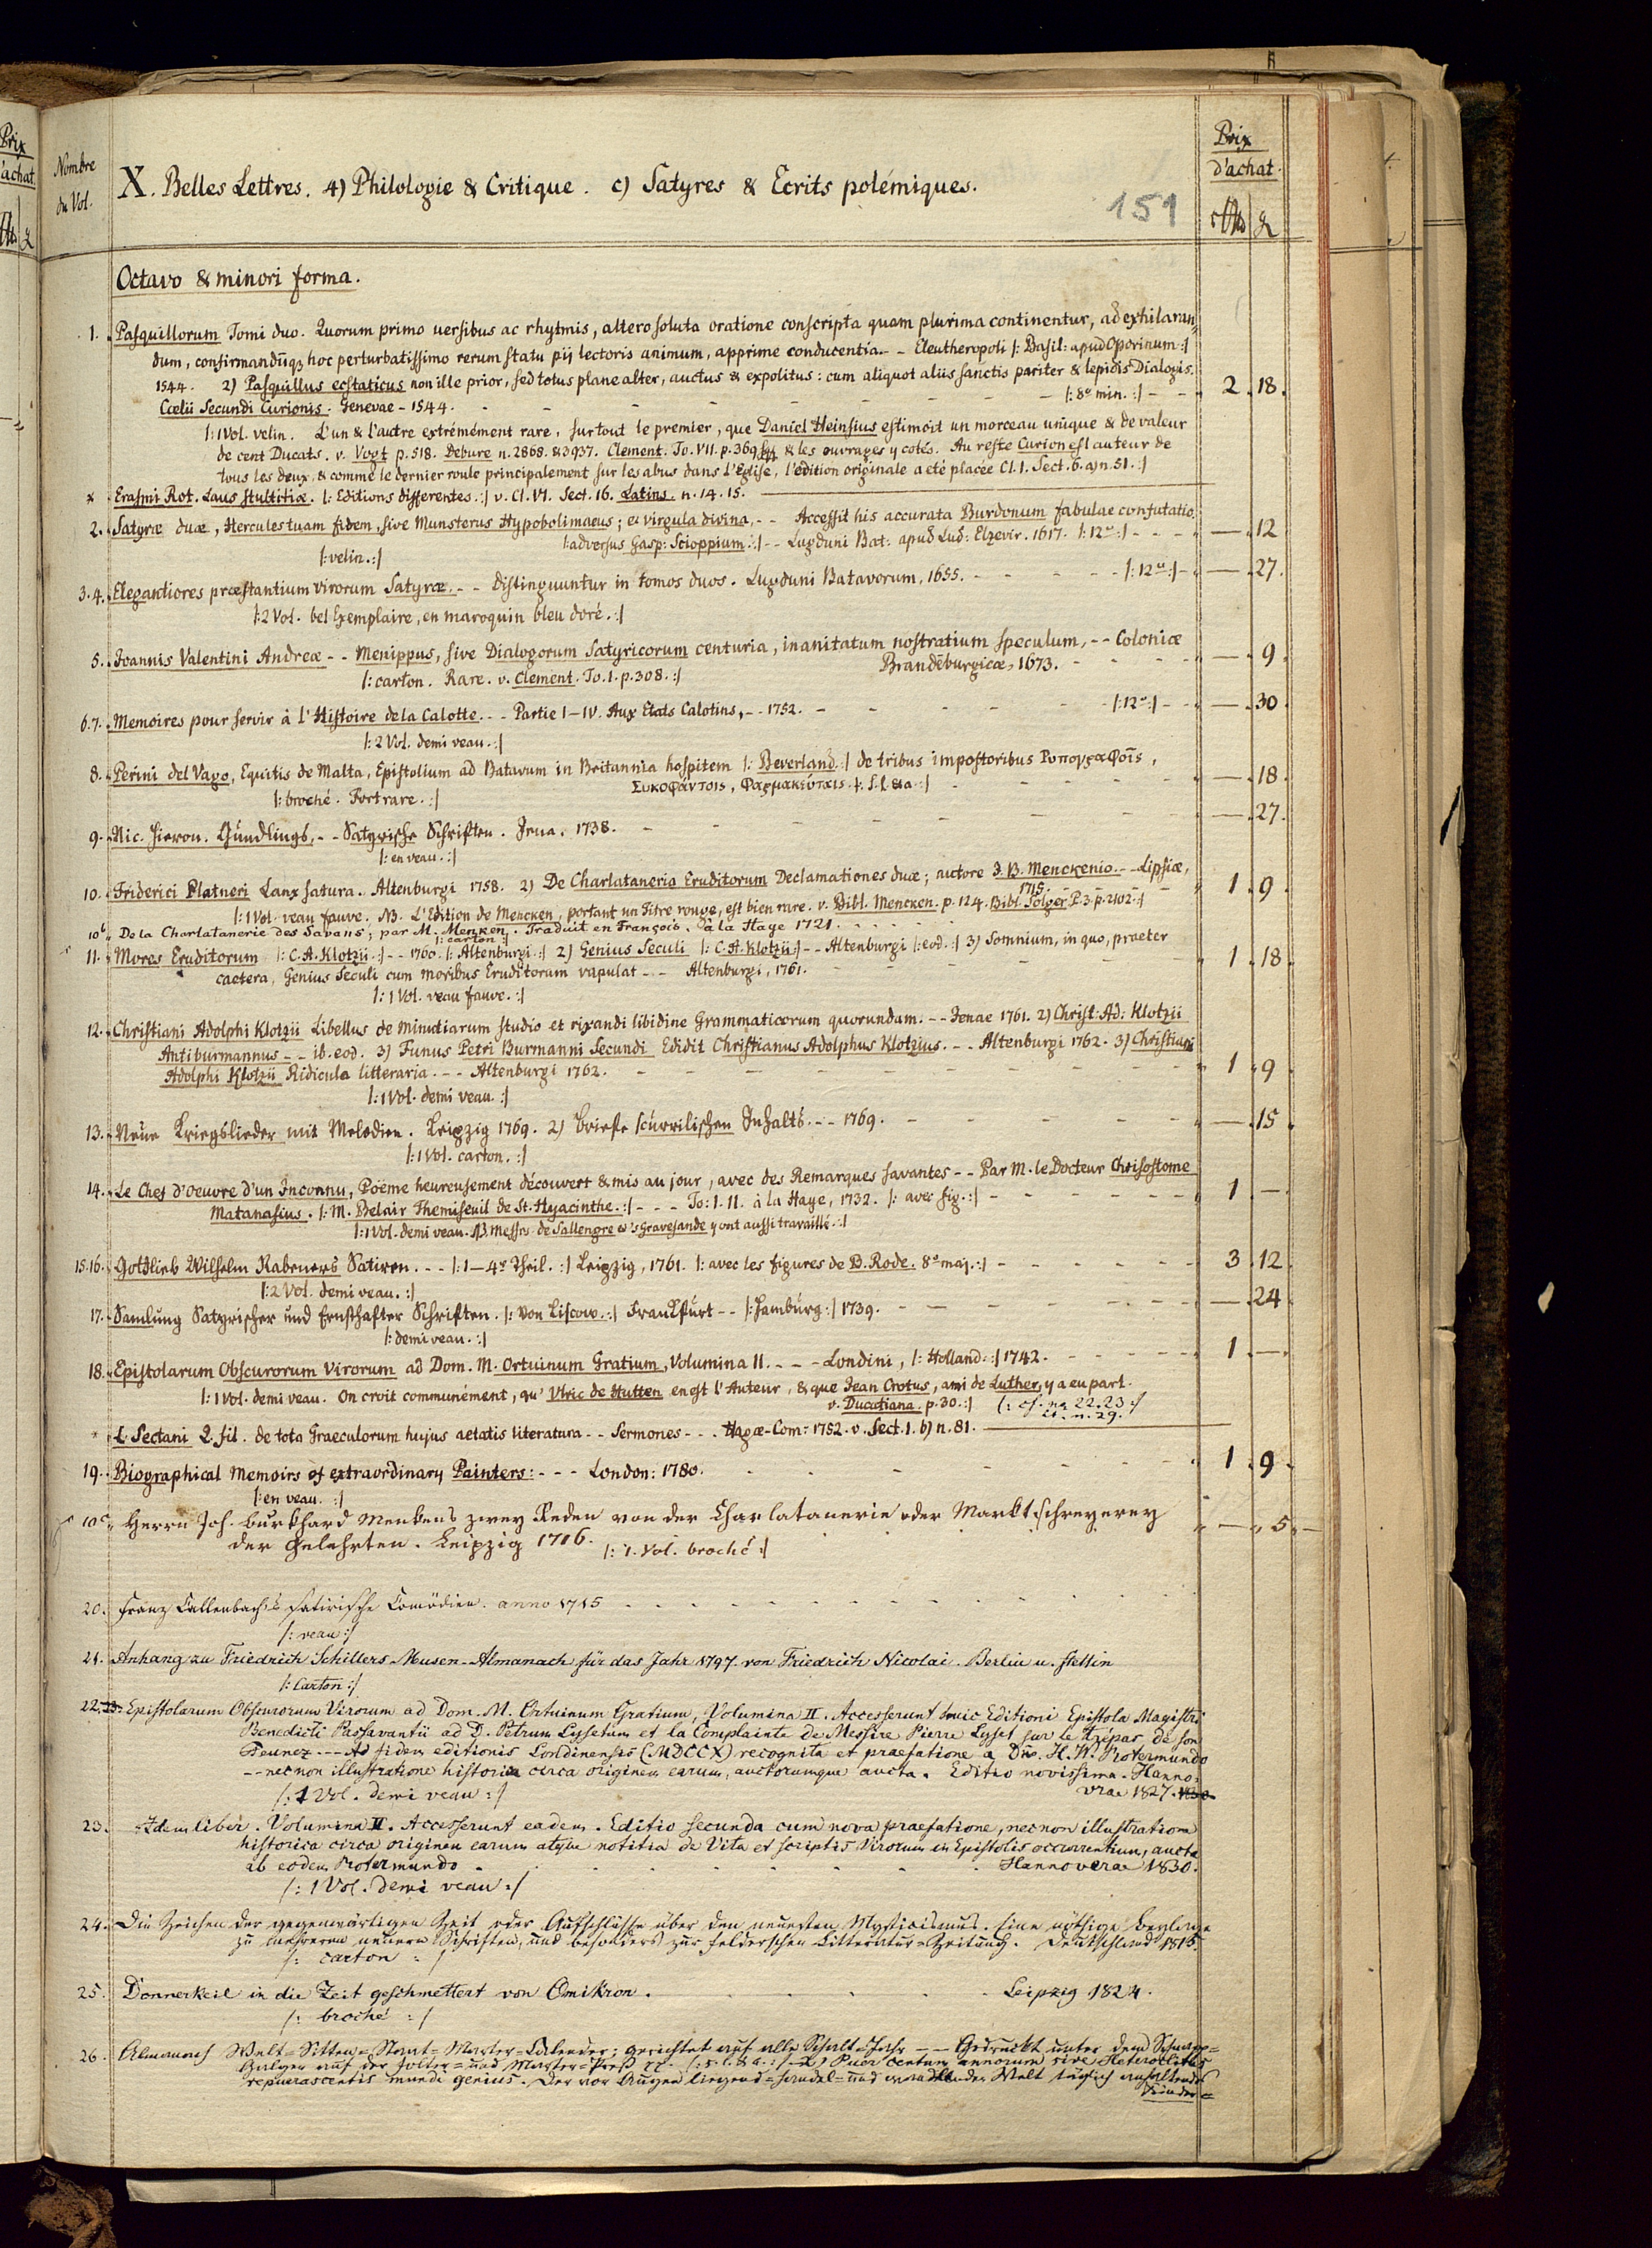 Prix
d'achat
Nombre
du Vol.
X. Belles Lettres. 4) Philologie & Critique. c) Satyres & Ecrits polémiques.
151
Prix
d'achat.
Octavo & minori forma.
1. Pasquillorum Tomi duo. Quorum primo uersibus ac rhytmis, altero soluta oratione conscripta quam plurima continentur, ad exhilaran-
dum, confirmandūq; hoc perturbatissimo rerum statu pij lectoris animum, apprime conducentia. - - Eleutheropoli |: Basil: apud Oporinum :|
1544. 2) Pasquillus ecstaticus non ille prior, sed totus plane alter, auctus & expolitus: cum aliquot aliis sanctis pariter & lepidis Dialogis.
Cœlii Secundi Curionis. Genevae - 1544. - - - |: 8o min. :| - - 2. 18.
|: 1 Vol. velin. L'un & l'autre extrémément rare, surtout le premier, que Daniel Heinsius estimoit un morceau unique & de valeur
de cent Ducats. v. Vogt p. 518. Debure n. 2868. & 3937. Clement. To. VII. p. 369 & les ouvrages y cotés. Au reste Curion est auteur de
tous les deux, & comme le dernier roule principalement sur les abus dans l'Eglise, l'edition originale a eté placée Cl. I. Sect. 6. a) n. 51. :|
x Erasmi Rot. Laus stultitiæ. |: Editions differentes. :| v. Cl. VI. Sect. 16. Latins. n. 14. 15.
2. Satyræ duæ, Hercules tuam fidem, sive Munsterus Hypobolimaeus; et virgula divina, - - Accessit his accurata Burdonum fabulae confutatio,
|: adversus Gasp: Scioppium. :| - - Lugduni Bat: apud Lud: Elzevir. 1617. |: 12o :| - - - — 12
|: velin. :|
3. 4. Elegantiores præstantium virorum Satyræ. - - Distinguuntur in tomos duos. Lugduni Batavorum, 1655. - - - |: 12o :| - — 27.
|: 2 Vol. bel Exemplaire, en maroquin bleu doré. :|
5. Joannis Valentini Andreæ - - Menippus, sive Dialogorum Satyricorum centuria, inanitatum nostratium speculum, - - Coloniæ
Brandeburgicæ, 1673. - - - — 9.
|: carton. Rare. v. Clement. To. I. p. 308. :|
6. 7. Memoires pour servir à l'Histoire de la Calotte. - - Partie I - IV. Aux Etats Calotins, - - 1752. - - - |: 12o :| - - — 30
|: 2 Vol. demi veau. :|
8. Perini del Vago, Equitis de Malta, Epistolium ad Batavum in Britannia hospitem |: Beverland :| de tribus impostoribus Ρυπογραφοῖς,
Συκοφάνταις, Φαρμακεύταις. |: s. l. & a. :| - - - — 18.
|: broché. Fort rare. :|
9. Nic. Hieron. Gundlings, - - Satyrische Schriften. Jena. 1738. - - - — 27.
|: en veau. :|
10. Friderici Platneri Lanx satura. Altenburgi 1758. 2) De Charlataneria Eruditorum Declamationes duæ; autore J. B. Menckenio. - - Lipsiæ,
1715. - - - 1. 9.
|: 1 Vol. veau fauve. NB. L'Edition de Mencken, portant un titre rouge, est bien rare. v. Bibl. Mencken. p. 124. Bibl. Solger P. 3. p. 2102. :|
10b. De la Charlatanerie des Savans; par M. Menken. Traduit en François. à la Haye 1721.
|: carton :|
11. Mores Eruditorum |: C. A. Klotzii :| - - 1760. |: Altenburgi :| 2) Genius Seculi |: C. A. Klotzii :| - - Altenburgi |: eod. :| 3) Somnium, in quo, praeter
caetera, Genius Seculi cum moribus Eruditorum vapulat - - Altenburgi, 1761. - - - 1. 18
|: 1 Vol. veau fauve. :|
12. Christiani Adolphi Klotzii Libellus de minutiarum studio et rixandi libidine Grammaticorum quorundam. - - Jenae 1761. 2) Christ: Ad: Klotzii
Antiburmannus - - ib. eod. 3) Funus Petri Burmanni Secundi Edidit Christianus Adolphus Klotzius. - - Altenburgi 1762. 3) Christiani
Adolphi Klotzii Ridicula litteraria. - - Altenburgi 1762. - - - 1. 9
|: 1 Vol. demi veau. :|
13. Neue Kriegslieder mit Melodien. Leipzig 1769. 2) Briefe scurrilischen Inhalts. - - 1769. - - - — 15
|: 1 Vol. carton. :|
14. Le Chef d'oeuvre d'un Inconnu, Poëme heureusement découvert & mis au jour, avec des Remarques savantes - - Par M. le Docteur Chrisostome
Matanasius. |: M. Belair Themiseuil de St. Hyacinthe. :| - - - To: I. II. à la Haye, 1732. |: avec fig. :| - - - 1. —
|: 1 Vol. demi veau. NB. Messrs. de Sallengre & 's Gravesande y ont aussi travaillé. :|
15. 16. Gottlieb Wilhelm Rabeners Satiren. - - |: 1 - 4r Theil. :| Leipzig, 1761. |: avec les figures de B. Rode. 8o maj. :| - - - 3. 12
|: 2 Vol. demi veau. :|
17. Samlung Satyrischer und Ernsthafter Schriften. |: Von Liscow. :| Frankfurt - - |: Hamburg :| 1739. - - - — 24
|: demi veau. :|
18. Epistolarum Obscurorum Virorum ad Dom. M. Ortuinum Gratium, Volumina II. - - - Londini, |: Holland. :| 1742. - - - 1. —
|: 1 Vol. demi veau. On croit communément, qu'Ulric de Hutten en est l'Auteur, & que Jean Crotus, ami de Luther, y a eu part.
v. Ducatiana. p. 30. :| (: cf. no 22. 23 :/
it. n. 29.
* L. Sectani Q. fil. de tota Graeculorum hujus aetatis literatura - - Sermones - - . Hagæ-Com: 1752. v. Sect. 1. b) n. 81.
19. Biographical Memoirs of extraordinary Painters: - - - London: 1780. - - - 1. 9
|: en veau. :|
10c. Herrn Joh. Burkhard Menkens zwey Reden von der Charlatanerie oder Marktschreyerey
der Gelehrten. Leipzig 1716. |: 1. Vol. broché :| — 5
20. Franz Callenbach's satirische Comödien. anno 1715
|: veau :|
21. Anhang zu Friedrich Schillers Musen-Almanach für das Jahr 1797. von Friedrich Nicolai. Berlin u. Stettin
|: Carton :|
22. Epistolarum Obscurorum Virorum ad Dom. M. Ortuinum Gratium, Volumina II. Accesserunt huic Editioni Epistola Magistri
Benedicti Passavantii ad D. Petrum Lysetum et la Complainte de Messire Pierre Lyset sur le trépas de son
Feunez - - - Ad fidem editionis Londinensis (MDCCX) recognita et praefatione a Dre. H. W. Rotermundo
- - necnon illustratione historica circa originem earum, auctorumque aucta. Editio novissima. Hanno-
vrae 1827.
|: 1 Vol. demi veau :|
23. Idem liber. Volumina II. Accesserunt eadem. Editio secunda cum nova praefatione, necnon illustratione
historica circa originem earum atque notitia de Vita et scriptis Virorum in Epistolis occurrentium, aucta
ab eodem Rotermundo - - - Hannoverae 1830.
|: 1 Vol. demi veau :|
24. Die Zeichen der gegenwärtigen Zeit oder Aufschlüsse über den neuesten Mysticismus. Eine nöthige Beylage
zu mehreren neuern Schriften, und besonders zur Felderschen Litteratur-Zeitung. Deutschland 1816.
|: carton :|
25. Donnerkeil in die Zeit geschmettert von Omikron. Leipzig 1824.
|: broché :|
26. Almanach Welt-Sitten-Staat-Marter-Calender; gerichtet auf alle Schalt-Jahr - - Gedruckt unter dem Schnapp-
Galgen auf der Folter- und Marter-Preß |: s. l. & a. :| 2) Puer centum annorum sive Heteroclitus
repuerascentis mundi genius. Der vor Augen liegend- und Welt täglich
Kinder-